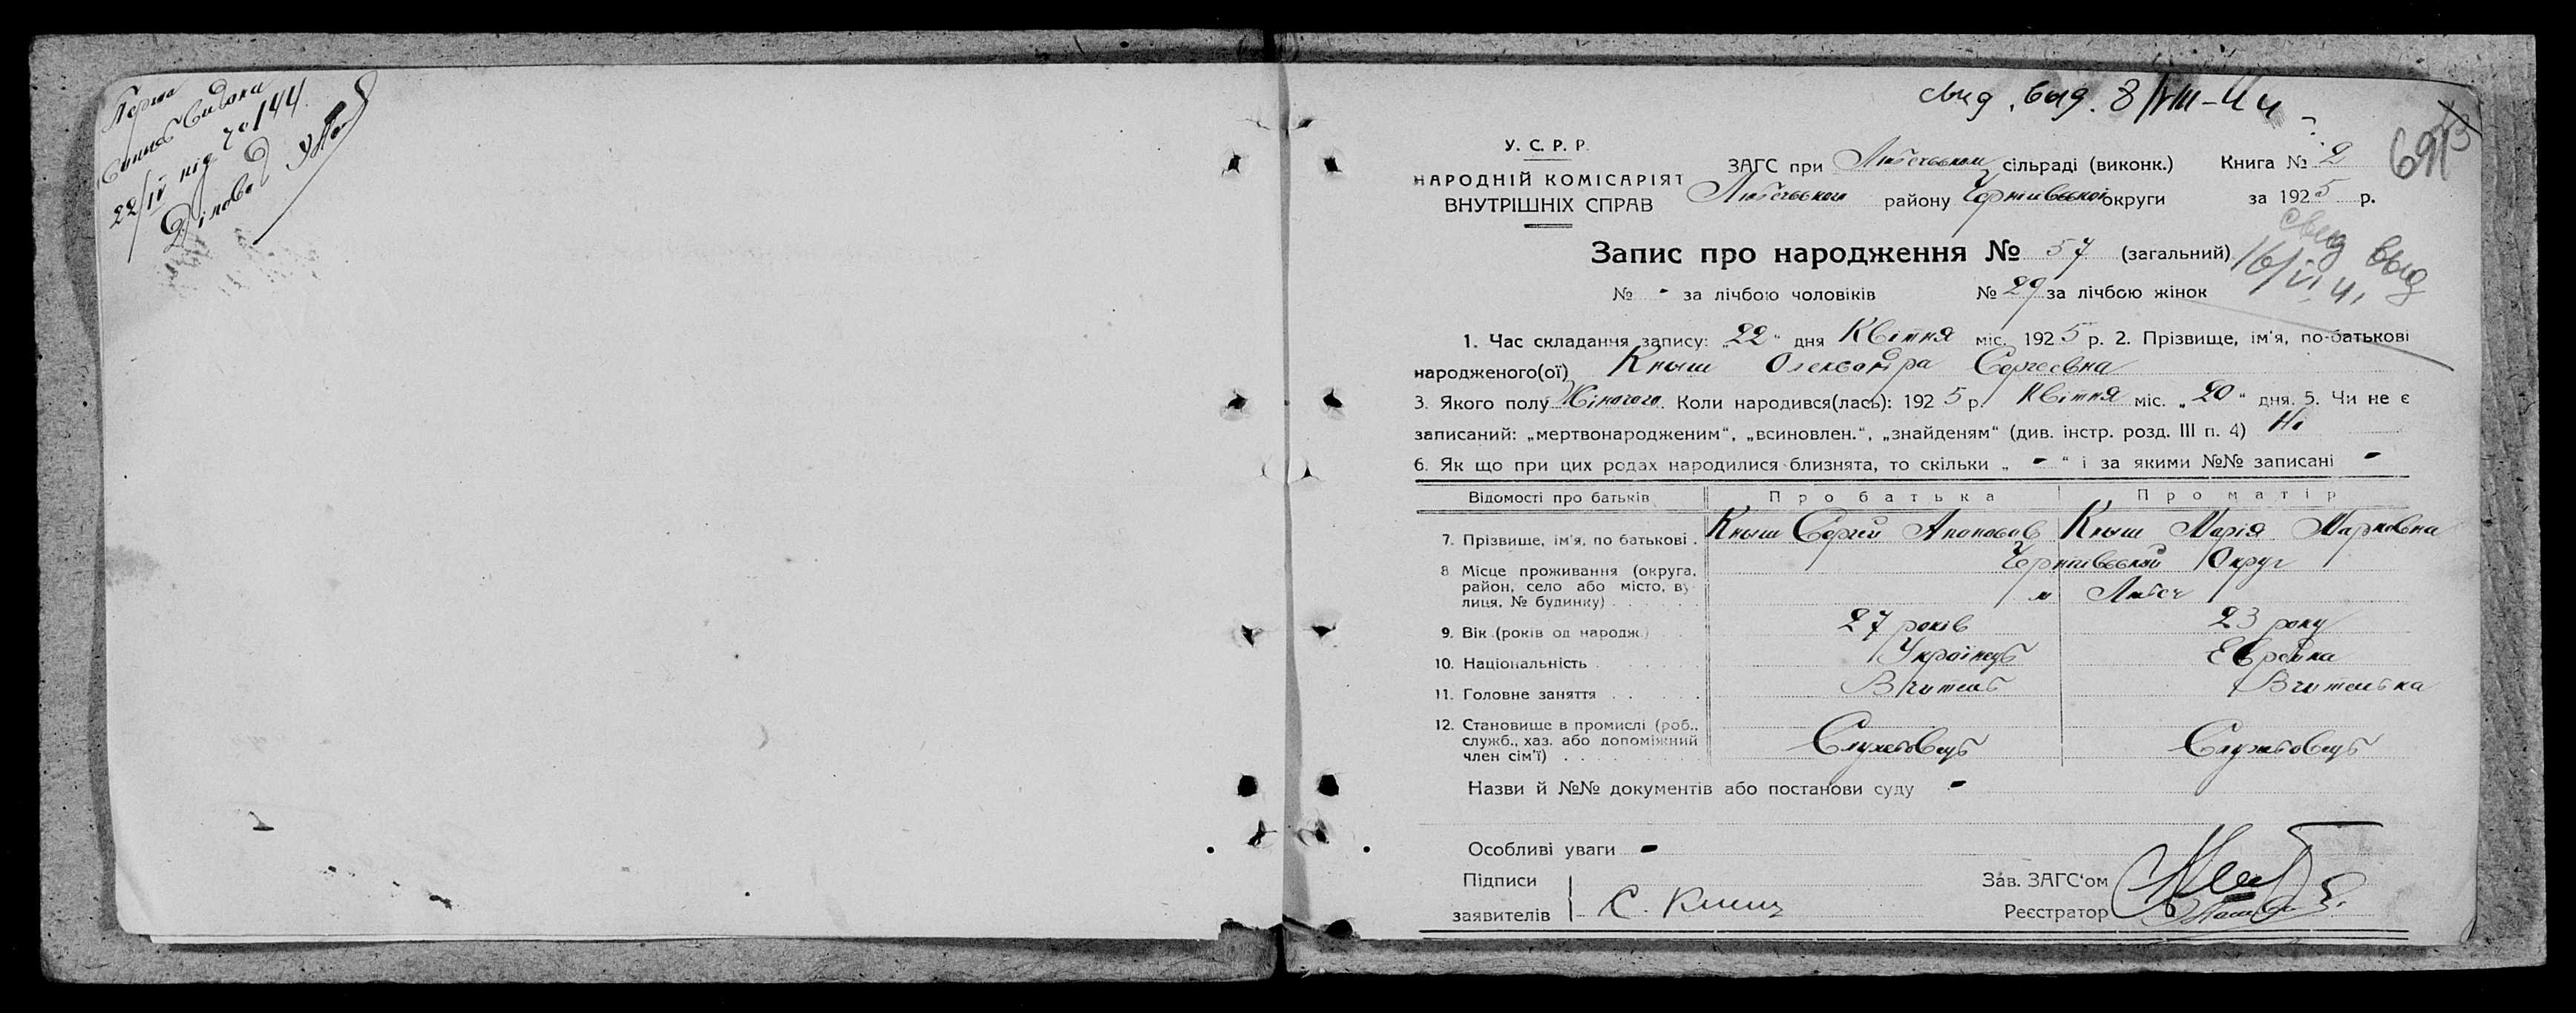 Перша
22/IV під № 144
свид. выд. 8/VIII-44
У. С. Р. Р.
НАРОДНІЙ КОМІСАРІЯТ
ВНУТРІШНІХ СПРАВ
ЗАГС при Любечьском сільраді (виконк.) Книга № 2
Любечьского району Чернигівської округи за 1925 р.
свид выд
16/VI 41
Запис про народження № 57 (загальний)
№ - за лічбою чоловіків № 29 за лічбою жінок
1. Час складання запису: „22“ дня Квітня міс. 1925 р. 2. Прізвище, ім'я, по-батькові
народженого(ої) Кныш Олександра Сергеєвна
3. Якого полу Жіночого. Коли народився(лась): 1925 р. Квітня міс. „20“ дня. 5. Чи не є
записаний: „мертвонародженим“, „всиновлен.“, „знайденям“ (див. інстр. розд. III п. 4) Ні
6. Як що при цих родах народилися близнята, то скільки „ - “ і за якими №№ записані -
Відомості про батьків Про батька Про матір
7. Прізвище, ім'я, по батькові. Кныш Сергій Кныш Марія Марковна
8 Місце проживання (округа, Чернигівський Округ
район, село або місто, ву-
лиця, № будинку) м Любеч
9. Вік (років од народж.) 27 років 23 року
10. Національність Українець Еврейка
11. Головне заняття Вчитель Вчителька
12. Становище в промислі (роб.,
служб., хаз. або допоміжний Службовець Службовець
член сім'ї)
Назви й №№ документів або постанови суду -
Особливі уваги -
Підписи Зав. ЗАГС'ом
заявителів С. Кныш Реєстратор